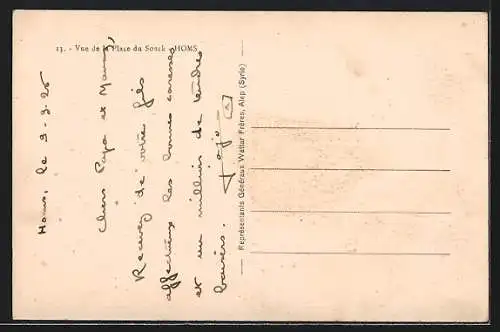 13. - Vue de la Place du Souk - HOMS
Homs, le 9-3-25
Chers Papa et Maman,
Recevez de votre fils
affectueux les bonnes caresses
et un millier de tendres
baisers.
Représentants Généraux Wattar Frères, Alep (Syrie)